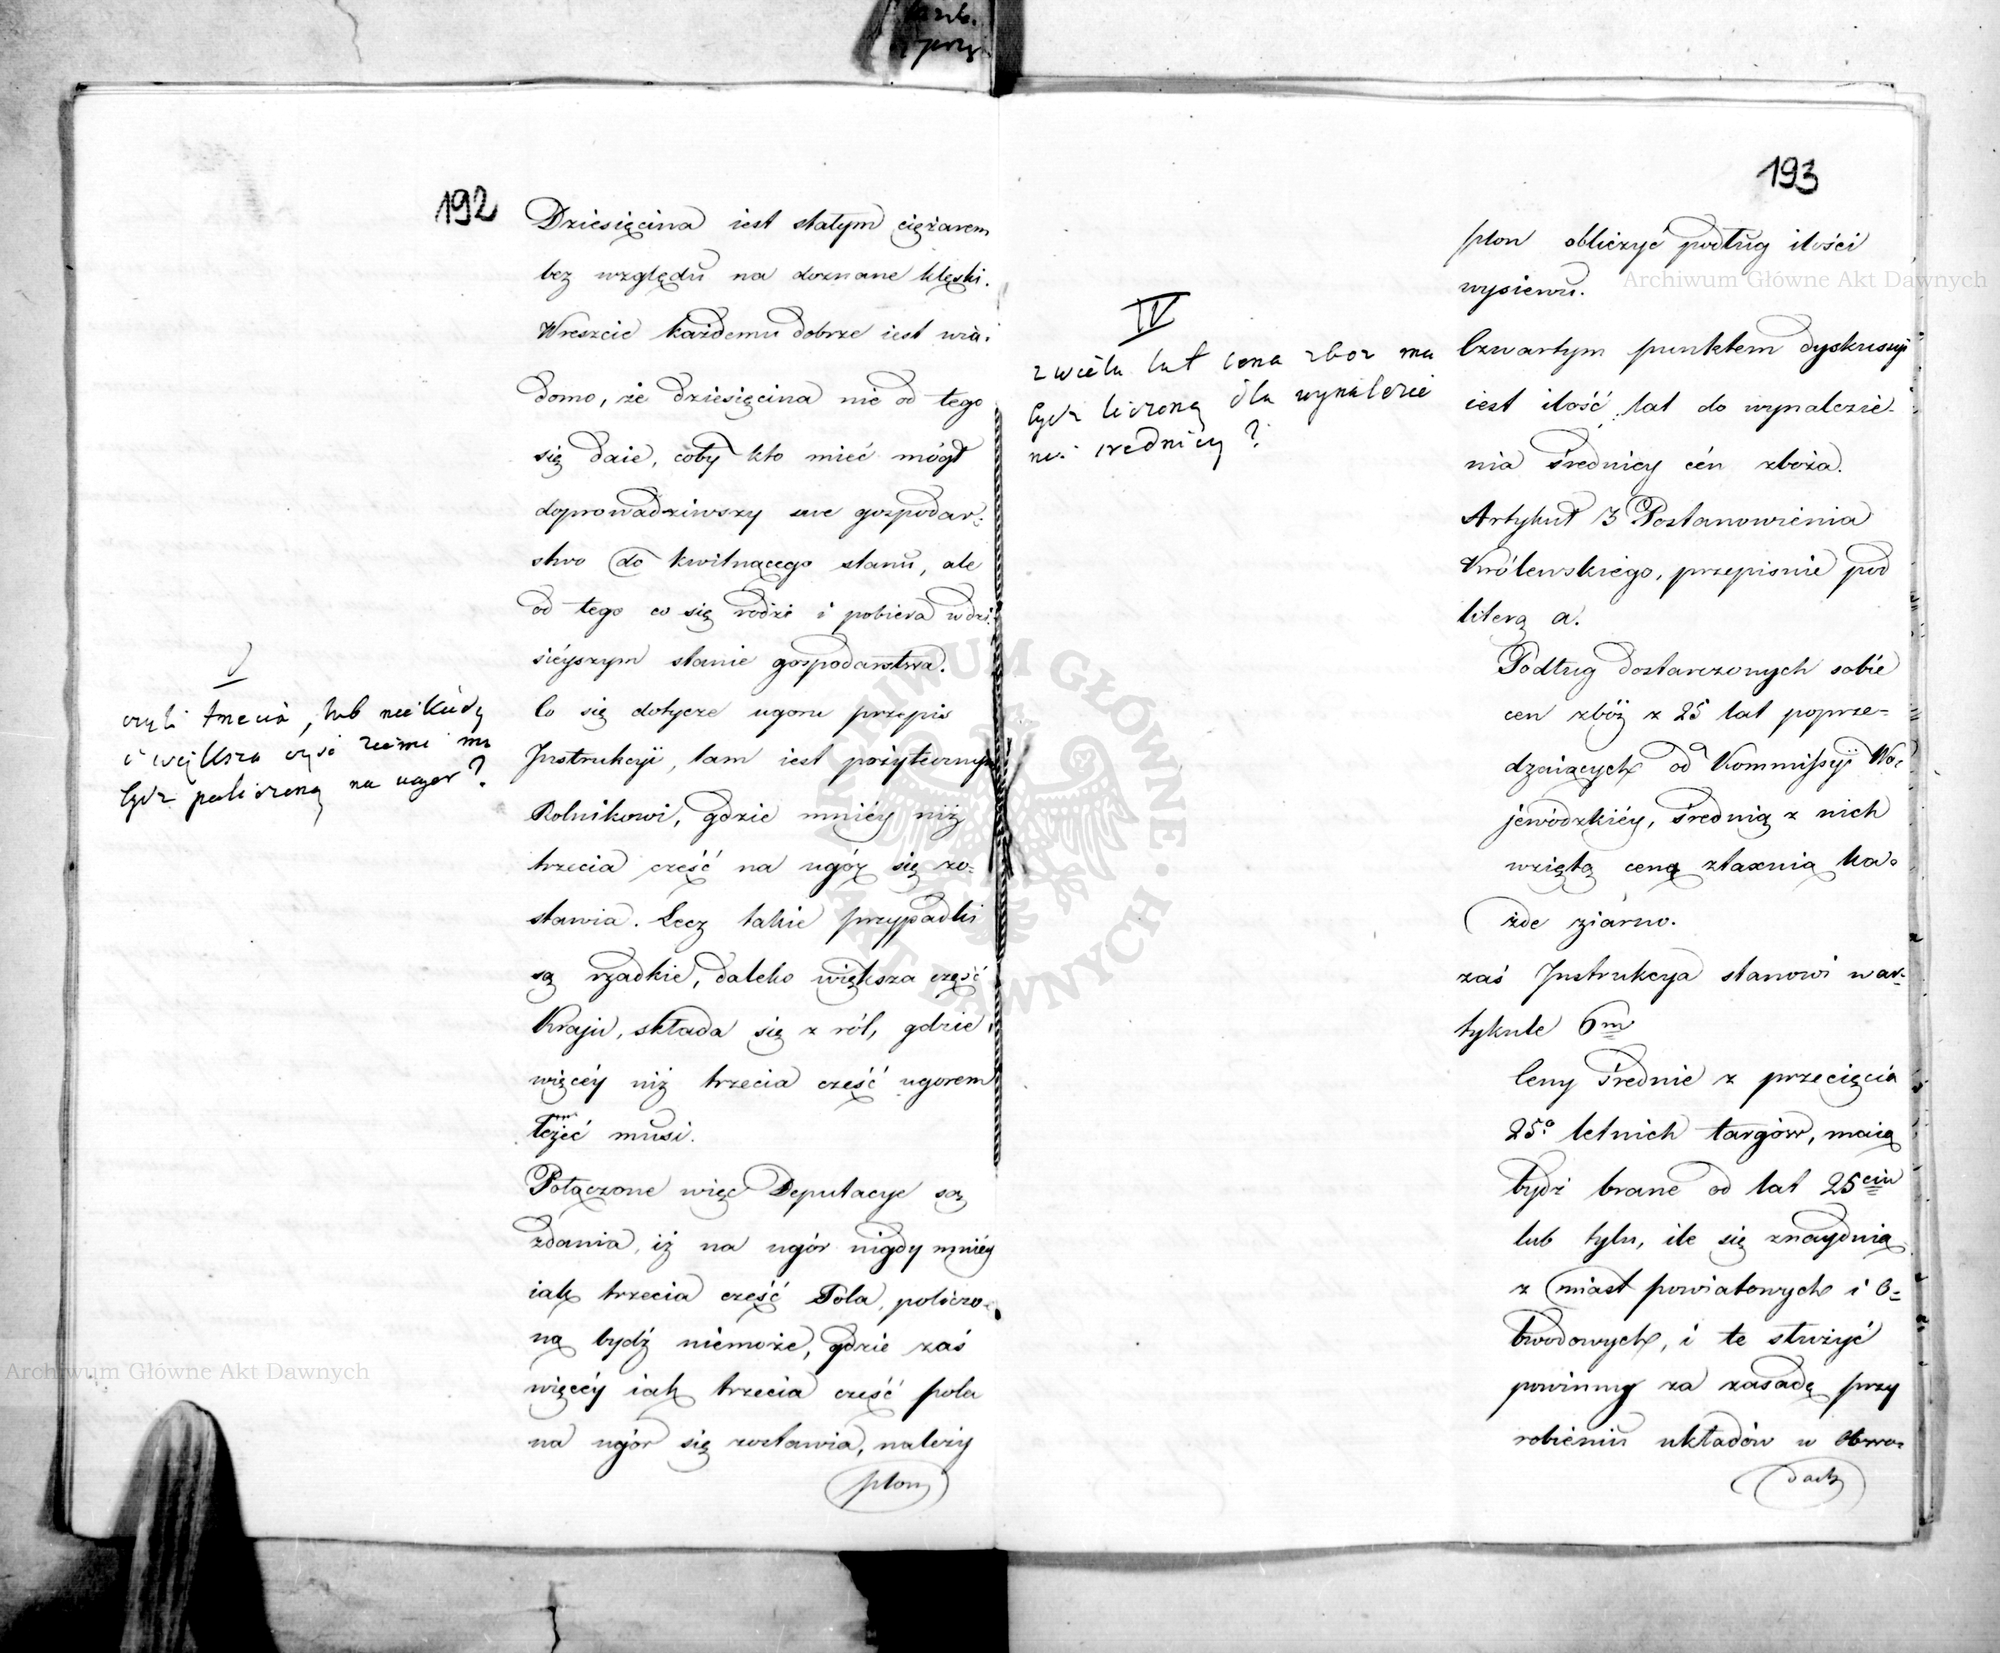 192
Dziesięcina iest stałym ciężarem
bez względu na doznane klęski.
Wreszcie każdemu dobrze iest wia-
domo, że dziesięcina nie od tego
się daie, coby kto mieć mógł
doprowadziwszy swe gospodar-
stwo do kwitnącego stanu, ale
od tego co się rodzi i pobiera w dzi-
sieyszym stanie gospodarstwa.
Co się dotycze ugoru przepis
Instrukcyi, tam iest pożytecznym
Rolnikowi, gdzie mniéy niż
trzecia cześć na ugór się zo-
stawia. Lecz takie przypadki
są rzadkie, daleko większa część
Kraju, składa się z ról, gdzie
więcéy niż trzecia cześć ugorem
leżeć musi.
Połączone więc Deputacye są
zdania, iż na ugór nigdy mniéy
iak trzecia cześć Pola, policzo-
ną bydź niemoże, gdzie zaś
więcéy iak trzecia cześć pola
na ugór się zostawia, należy
plon
czyli trzecia, lub niekiedy
i większa część ziemi ma
bydz policzoną na ugor?
193
plon obliczyć podług ilości
wysiewu.
Czwartym punktem dyskusyi
iest ilość lat do wynalezie-
nia średnicy cén zboża.
Artykuł 3 Postanowienia
Królewskiego, przepisuie pod
literą a.
Podług dostarczonych sobie
cen zbóż z 25 lat poprze-
dzaiących od Kommissyi Wo-
jewódzkiéy, średnią z nich
wziętą ceną ztaxuią ka-
żde ziarno.
zaś Instrukcya stanowi w ar-
tykule 6m
Ceny średnie z przecięcia
25o letnich targów, maią
bydź brane od lat 25ciu
lub tylu, ile się znaydnią
z miast powiatowych i O-
bwodowych, i te służyć
powinny za zasadę przy
robieniu układów w Obwo-
dach
IV
z wielu lat cena zboz ma
bydz liczoną dla wynalezie
nia srednicy?
Archiwum Główne Akt Dawnych
Archiwum Główne Akt Dawnych
ARCHIWUM GŁÓWNE AKT DAWNYCH